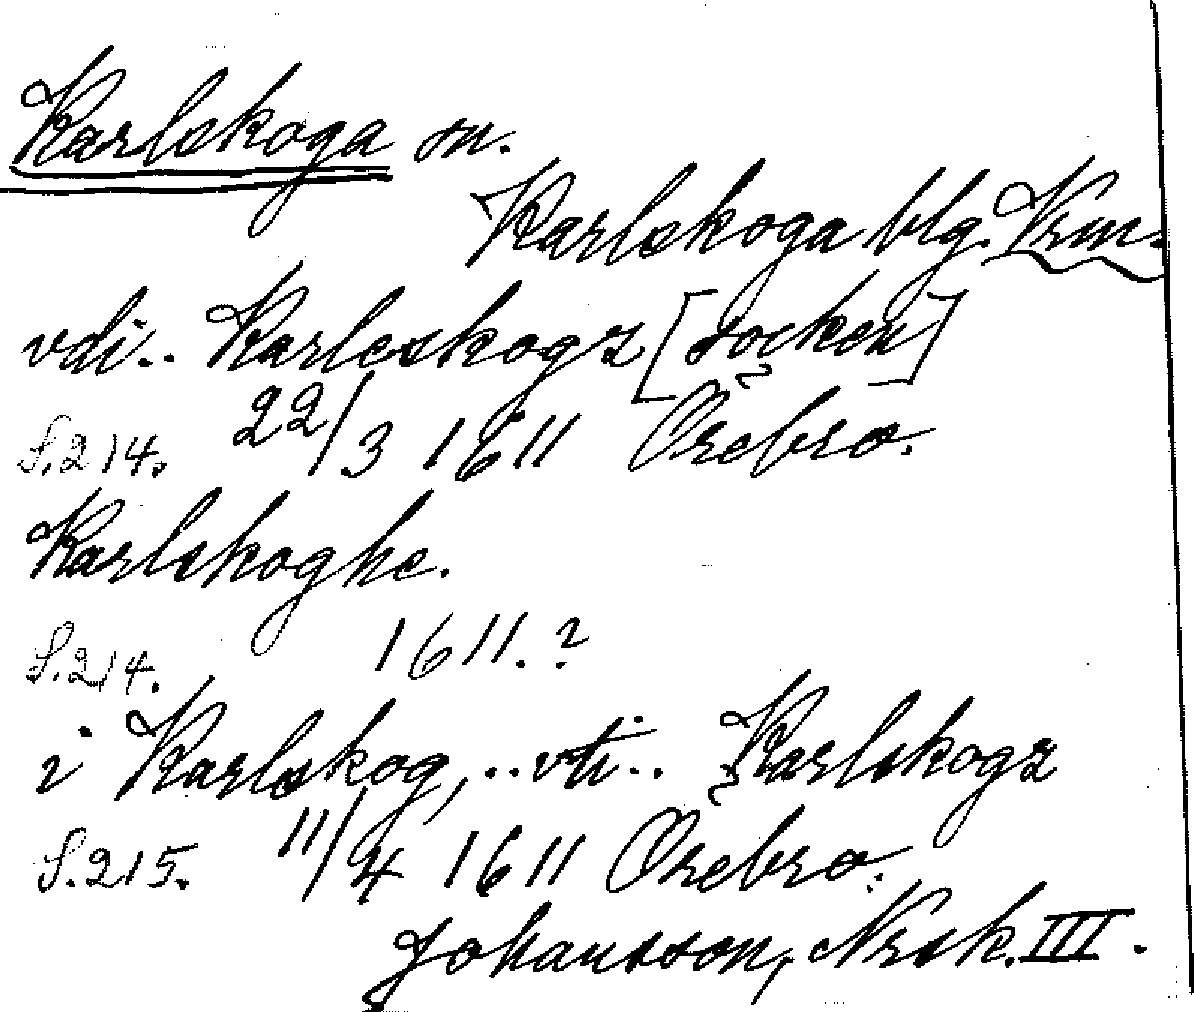 Karlskoga sn.
Karlskoga blg. Vrm.
vdi.. Karleskogz [socken]
S.214. 22/3 1611 Örebro.
Karlskoghe.
S.214. 1611.?
i Karlskog, ..vti.. Karlskogz
S.215. 11/4 1611 Örebro.
Johansson, Nrsk. III.